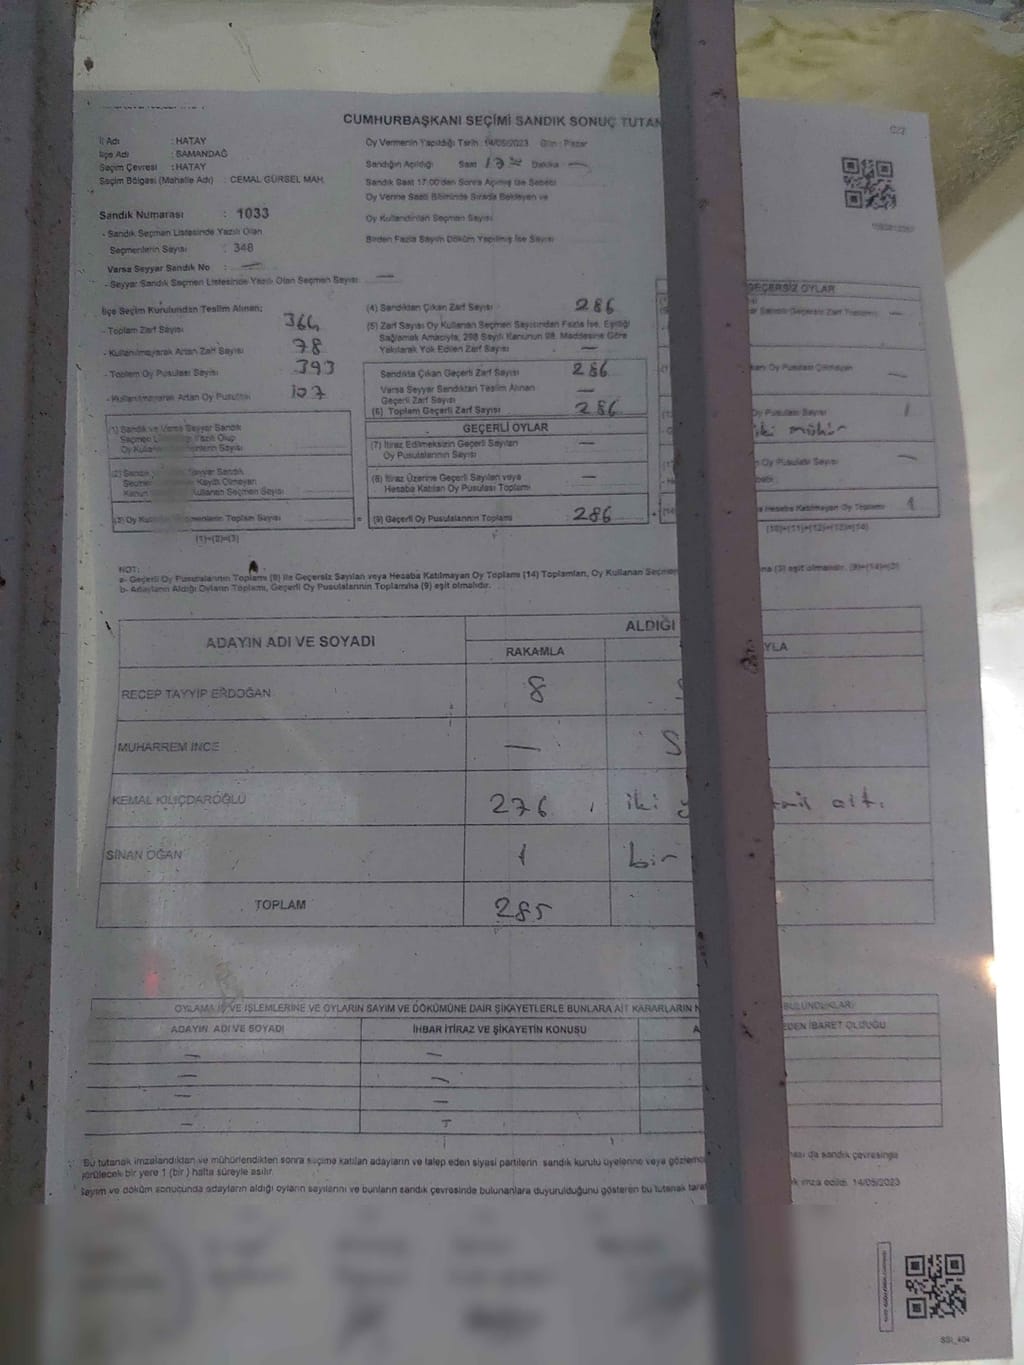 CUMHURBAŞKANI SEÇİMİ SANDIK SONUÇ TUTAN
İl Adı : HATAY
İlçe Adı : SAMANDAĞ
Seçim Çevresi : HATAY
Seçim Bölgesi (Mahalle Adı) : CEMAL GÜRSEL MAH.
Oy Vermenin Yapıldığı Tarih : 14/05/2023 Gün : Pazar
Sandığın Açıldığı Saat 17 Dakika —
Sandık Saat 17:00'den Sonra Açılmış İse Sebebi
Oy Verme Saati Bitiminde Sırada Bekleyen ve
Oy Kullandırılan Seçmen Sayısı
Birden Fazla Sayım Döküm Yapılmış İse Sayısı
Sandık Numarası : 1033
- Sandık Seçmen Listesinde Yazılı Olan
Seçmenlerin Sayısı : 348
Varsa Seyyar Sandık No : —
- Seyyar Sandık Seçmen Listesinde Yazılı Olan Seçmen Sayısı : —
İlçe Seçim Kurulundan Teslim Alınan;
- Toplam Zarf Sayısı 364
- Kullanılmayarak Artan Zarf Sayısı 78
- Toplam Oy Pusulası Sayısı 393
- Kullanılmayarak Artan Oy Pusulası 107
(4) Sandıktan Çıkan Zarf Sayısı 286
(5) Zarf Sayısı Oy Kullanan Seçmen Sayısından Fazla İse, Eşitliği
Sağlamak Amacıyla, 298 Sayılı Kanunun 98. Maddesine Göre
Yakılarak Yok Edilen Zarf Sayısı —
Sandıkta Çıkan Geçerli Zarf Sayısı 286
Varsa Seyyar Sandıktan Teslim Alınan
Geçerli Zarf Sayısı —
(6) Toplam Geçerli Zarf Sayısı 286
GEÇERLİ OYLAR
(7) İtiraz Edilmeksizin Geçerli Sayılan
Oy Pusulalarının Sayısı —
(8) İtiraz Üzerine Geçerli Sayılan veya
Hesaba Katılan Oy Pusulası Toplamı —
(9) Geçerli Oy Pusulalarının Toplamı 286
(1) Sandık ve Varsa Seyyar Sandık
Seçmen Yazılı Olup
Oy Kulla Sayısı
(2) Sandık Seyyar Sandık
Seçmen Kayıtlı Olmayan
Kanun Kullanan Seçmen Sayısı
(3) Oy Toplam Sayısı
(1)+(2)=(3)
GEÇERSİZ OYLAR
Oy Pusulası Sayısı 1
iki mühür
Oy Pusulası Sayısı —
Hesaba Katılmayan Oy Toplamı 1
(10)+(11)+(12)+(13)=(14)
NOT:
a- Geçerli Oy Pusulalarının Toplamı (9) ile Geçersiz Sayılan veya Hesaba Katılmayan Oy Toplamı (14) Toplamları, Oy Kullanan Seçmen na (3) eşit olmalıdır. (9)+(14)=(3)
b- Adayların Aldığı Oyların Toplamı, Geçerli Oy Pusulalarının Toplamına (9) eşit olmalıdır.
ADAYIN ADI VE SOYADI
ALDIĞI
RAKAMLA YLA
RECEP TAYYİP ERDOĞAN 8
MUHARREM İNCE — S
KEMAL KILIÇDAROĞLU 276 iki y mis altı
SİNAN OĞAN 1 bir
TOPLAM 285
OYLAMA İŞ VE İŞLEMLERİNE VE OYLARIN SAYIM VE DÖKÜMÜNE DAİR ŞİKAYETLERLE BUNLARA AİT KARARLARIN N BULUNDUKLARI
ADAYIN ADI VE SOYADI İHBAR İTİRAZ VE ŞİKAYETİN KONUSU A EDEN İBARET OLDUĞU
— —
— —
— —
— —
Bu tutanak imzalandıktan ve mühürlendikten sonra seçime katılan adayların ve talep eden siyasi partilerin sandık kurulu üyelerine veya gözlemc da sandık çevresinde
görülecek bir yere 1 (bir) hafta süreyle asılır.
Sayım ve döküm sonucunda adayların aldığı oyların sayılarını ve bunların sandık çevresinde bulunanlara duyurulduğunu gösteren bu tutanak taraf k imza edildi. 14/05/2023